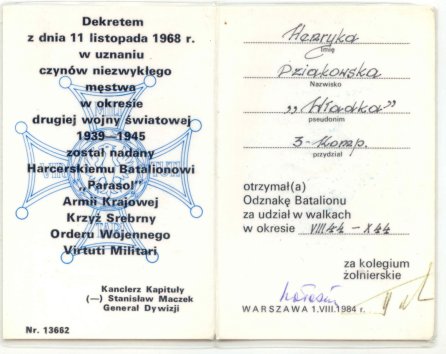 Dekretem
z dnia 11 listopada 1968 r.
w uznaniu
czynów niezwykłego
męstwa
w okresie
drugiej wojny światowej
1939—1945
został nadany
Harcerskiemu Batalionowi
„Parasol”
Armii Krajowej
Krzyż Srebrny
Orderu Wojennego
Virtuti Militari
Kanclerz Kapituły
(—) Stanisław Maczek
Generał Dywizji
Nr. 13662
Henryka
Imię
Dziakowska
Nazwisko
„Władka”
pseudonim
3-Komp.
przydział
otrzymał(a)
Odznakę Batalionu
za udział w walkach
w okresie VIII 44 – X 44
za kolegium
żołnierskie
WARSZAWA 1.VIII.1984 r.